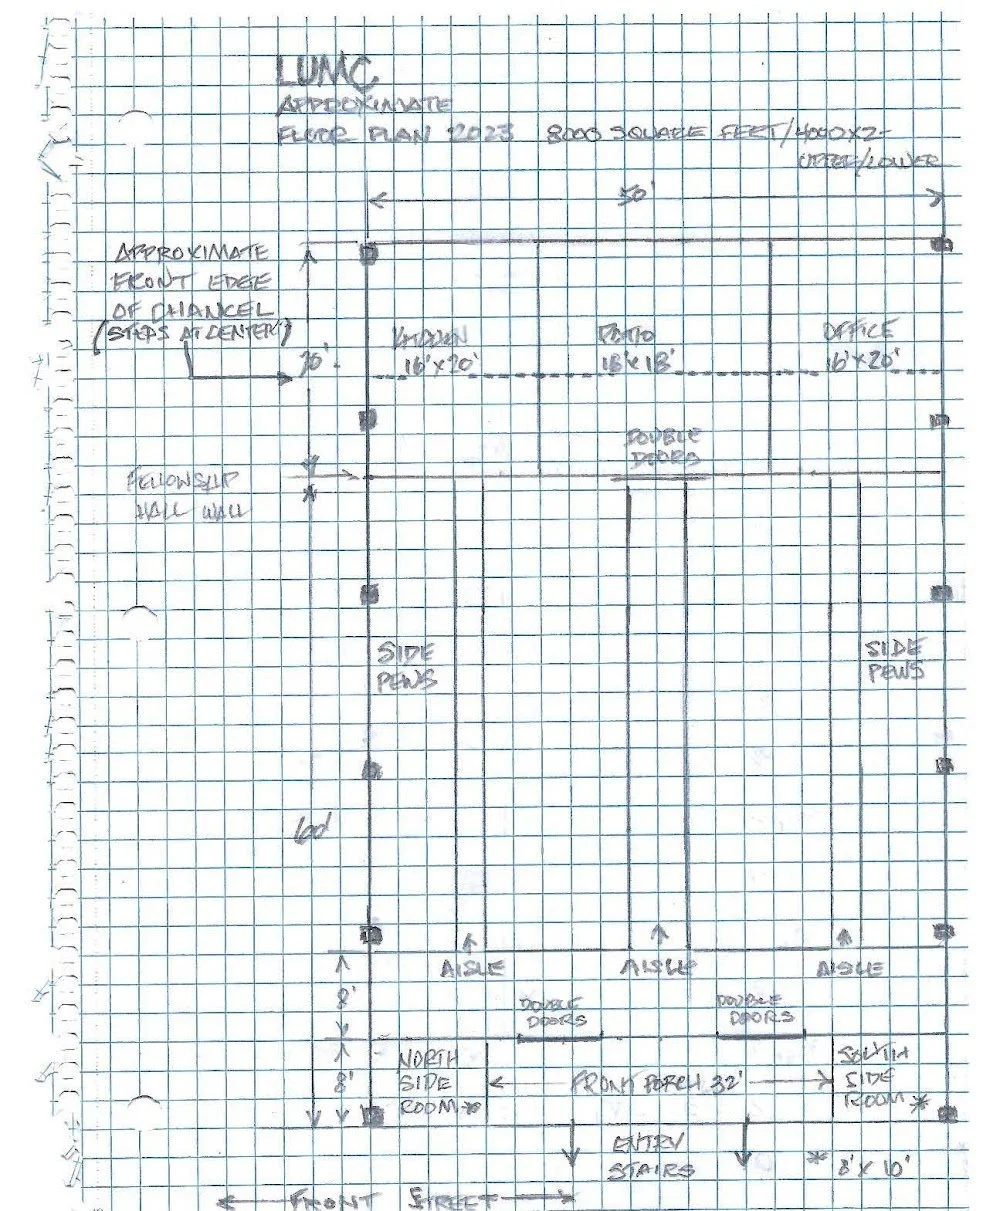 LUMC
APPROXIMATE
FLOOR PLAN 2023 8000 SQUARE FEET/4000X2-
UPPER/LOWER
50'
APPROXIMATE
FRONT EDGE
OF CHANCEL
(STEPS AT CENTER)
KITCHEN
16'X20'
PATIO
18'X18'
OFFICE
16'X20'
DOUBLE
DOORS
FELLOWSHIP
HALL WALL
SIDE
PEWS
SIDE
PEWS
60'
AISLE
AISLE
AISLE
8'
DOUBLE
DOORS
DOUBLE
DOORS
8'
NORTH
SIDE
ROOM*
FRONT PORCH 32'
SOUTH
SIDE
ROOM *
ENTRY
STAIRS
* 8' X 10'
FRONT STREET